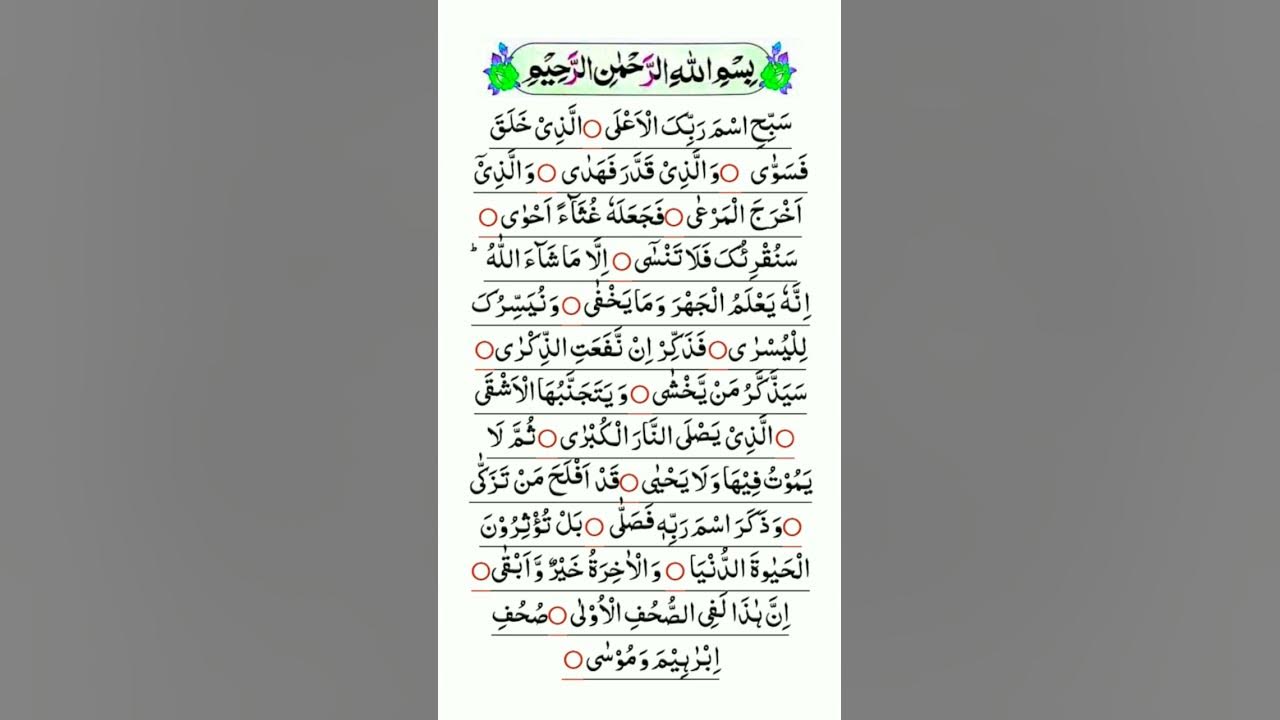 بِسْمِ اللهِ الرَّحْمٰنِ الرَّحِيْمِ
سَبِّحِ اسْمَ رَبِّکَ الْاَعْلَی ○ الَّذِیْ خَلَقَ
فَسَوّٰی ○ وَ الَّذِیْ قَدَّرَ فَهَدٰی ○ وَ الَّذِیْۤ
اَخْرَجَ الْمَرْعٰی ○ فَجَعَلَهٗ غُثَآءً اَحْوٰی ○
سَنُقْرِئُکَ فَلَا تَنْسٰۤی ○ اِلَّا مَا شَآءَ اللّٰهُ ؕ
اِنَّهٗ يَعْلَمُ الْجَهْرَ وَ مَا يَخْفٰی ○ وَ نُيَسِّرُکَ
لِلْيُسْرٰی ○ فَذَکِّرْ اِنْ نَّفَعَتِ الذِّکْرٰی ○
سَيَذَّکَّرُ مَنْ يَّخْشٰی ○ وَ يَتَجَنَّبُهَا الْاَشْقَی
○ الَّذِیْ يَصْلَی النَّارَ الْکُبْرٰی ○ ثُمَّ لَا
يَمُوْتُ فِيْهَا وَ لَا يَحْيٰی ○ قَدْ اَفْلَحَ مَنْ تَزَکّٰی
○ وَ ذَکَرَ اسْمَ رَبِّهٖ فَصَلّٰی ○ بَلْ تُؤْثِرُوْنَ
الْحَيٰوةَ الدُّنْيَا ○ وَ الْاٰخِرَةُ خَيْرٌ وَّ اَبْقٰی ○
اِنَّ هٰذَا لَفِی الصُّحُفِ الْاُوْلٰی ○ صُحُفِ
اِبْرٰهِيْمَ وَ مُوْسٰی ○